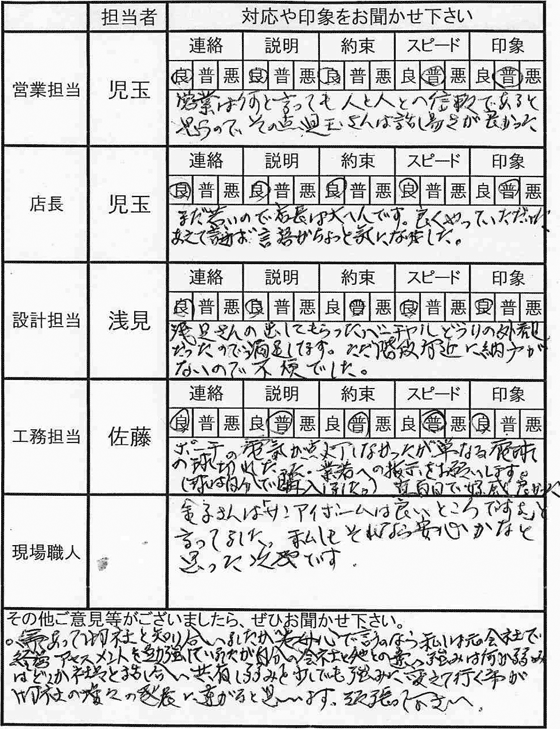 担当者 対応や印象をお聞かせ下さい
営業担当 児玉
連絡 説明 約束 スピード 印象
良 普 悪 良 普 悪 良 普 悪 良 普 悪 良 普 悪
営業は何と言っても人と人との信頼であると
思うので、その点児玉さんは話し易さが良かった
店長 児玉
連絡 説明 約束 スピード 印象
良 普 悪 良 普 悪 良 普 悪 良 普 悪 良 普 悪
まだ若いので店長は大へんです。良くやっていただけ
あえて言語がちょっと気になりました。
設計担当 浅見
連絡 説明 約束 スピード 印象
良 普 悪 良 普 悪 良 普 悪 良 普 悪 良 普 悪
浅見さんの出してもらったバーチャルどうりの外観
だったので満足してます。ただ階段付近に納戸が
ないので不便でした。
工務担当 佐藤
連絡 説明 約束 スピード 印象
良 普 悪 良 普 悪 良 普 悪 良 普 悪 良 普 悪
ポーチの電気が点灯しなかったが単なる電球
の球切れだった 業者への指示をお願いします。
(球は自分で購入しました。) 真面目で
現場職人
金子さんは「サンアイホームは良いところですよ」と
言ってました。私もそれなら安心かなと
思った次第です。
その他ご意見等がございましたら、ぜひお聞かせ下さい。
あって御社と知り合いましたが老婆心で 私は元会社で
アセスメントを勉強していたが自分の会社と他との違い、強みは何か弱み
はどこか社員と話し合い共有し弱みを少しでも強みに変えて行く事が
御社の益々の発展に繋がると思います。頑張って下さい。